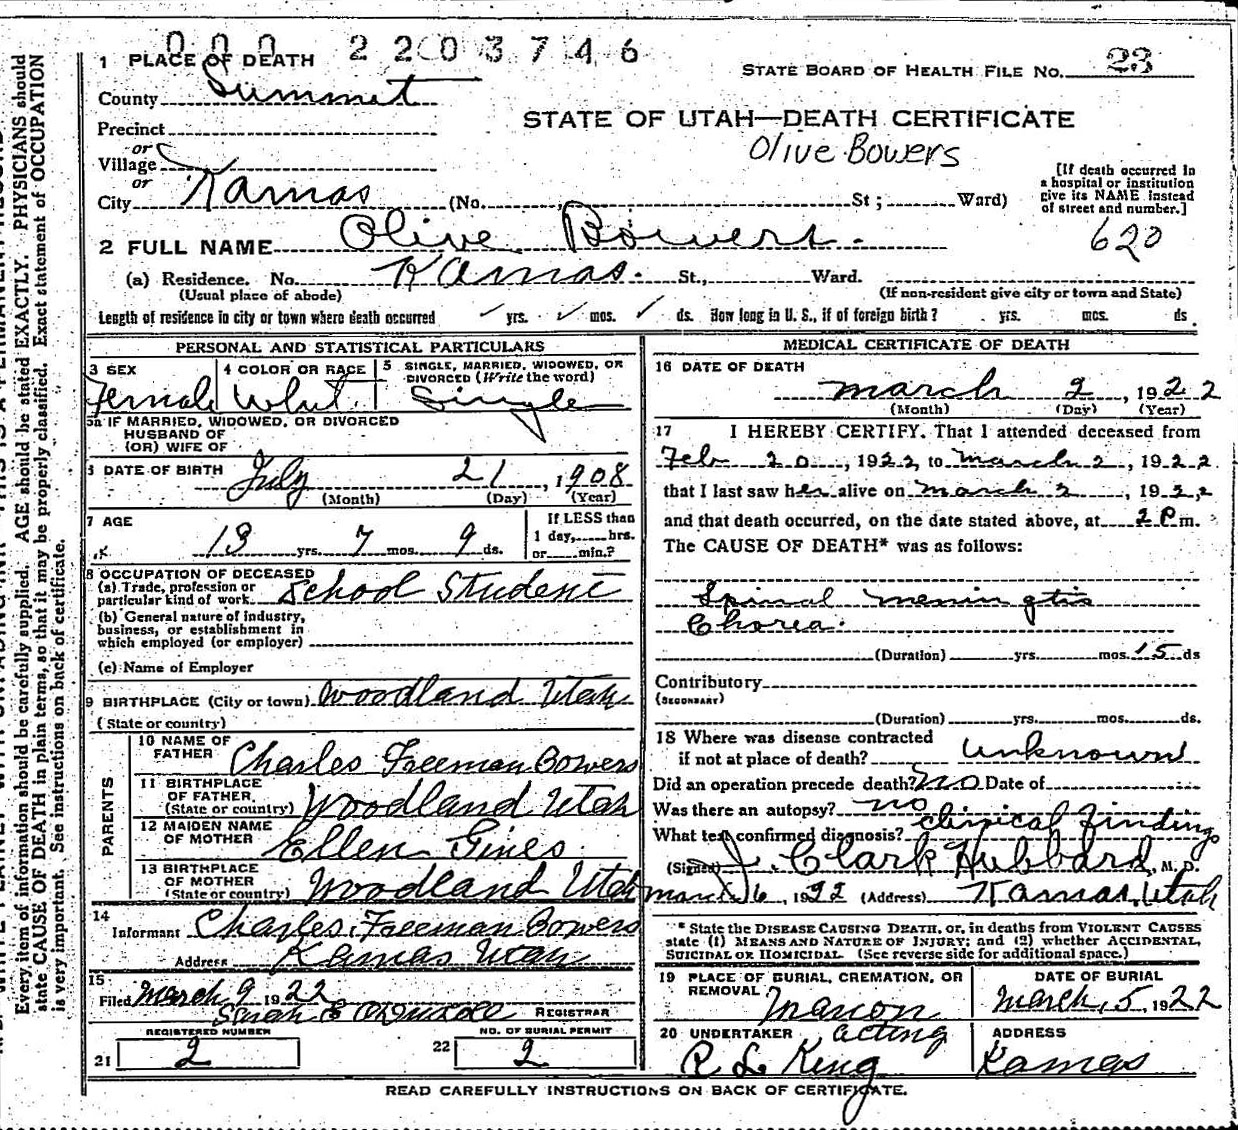 000 2203746
1 PLACE OF DEATH
STATE BOARD OF HEALTH FILE NO. 23
County Summit
STATE OF UTAH—DEATH CERTIFICATE
Precinct
Olive Bowers
or
Village
or
City Kamas (No. St; Ward)
[If death occurred in
a hospital or institution
give its NAME instead
of street and number.]
620
2 FULL NAME Olive Bowers.
(a) Residence. No. Kamas. St., Ward.
(Usual place of abode) (If non-resident give city or town and State)
Length of residence in city or town where death occurred ✓ yrs. ✓ mos. ✓ ds. How long in U. S., if of foreign birth? yrs. mos. ds.
PERSONAL AND STATISTICAL PARTICULARS
3 SEX
Female
4 COLOR OR RACE
Whit
5 SINGLE, MARRIED, WIDOWED, OR
DIVORCED (Write the word)
Single
5a IF MARRIED, WIDOWED, OR DIVORCED
HUSBAND OF
(OR) WIFE OF
DATE OF BIRTH July 21, 1908
(Month) (Day) (Year)
7 AGE
13 yrs. 7 mos. 9 ds.
If LESS than
1 day, hrs.
or min.?
8 OCCUPATION OF DECEASED
(a) Trade, profession or
particular kind of work. School Student
(b) General nature of industry,
business, or establishment in
which employed (or employer)
(c) Name of Employer
9 BIRTHPLACE (City or town) Woodland Utah
(State or country)
PARENTS
10 NAME OF
FATHER Charles Freeman Bowers
11 BIRTHPLACE
OF FATHER,
(State or country) Woodland Utah
12 MAIDEN NAME
OF MOTHER Ellen Gines.
13 BIRTHPLACE
OF MOTHER
(State or country) Woodland Utah
14
Informant Charles Freeman Bowers
Address Kamas Utah
15
Filed March 9 1922
Sarah E REGISTRAR
REGISTERED NUMBER
21 2
NO. OF BURIAL PERMIT
22 2
MEDICAL CERTIFICATE OF DEATH
16 DATE OF DEATH
March 2, 1922
(Month) (Day) (Year)
17 I HEREBY CERTIFY. That I attended deceased from
Feb 20, 1922, to March 2, 1922
that I last saw her alive on March 2, 1922
and that death occurred, on the date stated above, at 2 P m.
The CAUSE OF DEATH* was as follows:
Spinal meningtis
Chorea.
(Duration) yrs. mos. 15 ds
Contributory
(SECONDARY)
(Duration) yrs. mos. ds.
18 Where was disease contracted
if not at place of death? unknown
Did an operation precede death? no Date of
Was there an autopsy? no
What test confirmed diagnosis? clinical findings
(Signed) J. Clark Hubbard, M. D.
March 6, 1922 (Address) Kamas, Utah
* State the DISEASE CAUSING DEATH, or, in deaths from VIOLENT CAUSES
state (1) MEANS AND NATURE OF INJURY; and (2) whether ACCIDENTAL,
SUICIDAL OR HOMICIDAL (See reverse side for additional space.)
19 PLACE OF BURIAL, CREMATION, OR
REMOVAL Marion
DATE OF BURIAL
March, 5, 1922
20 UNDERTAKER acting
R L King
ADDRESS
Kamas
READ CAREFULLY INSTRUCTIONS ON BACK OF CERTIFICATE.
Every item of information should be carefully supplied. AGE should be stated EXACTLY. PHYSICIANS should
state CAUSE OF DEATH in plain terms, so that it may be properly classified. Exact statement of OCCUPATION
is very important. See instructions on back of certificate.